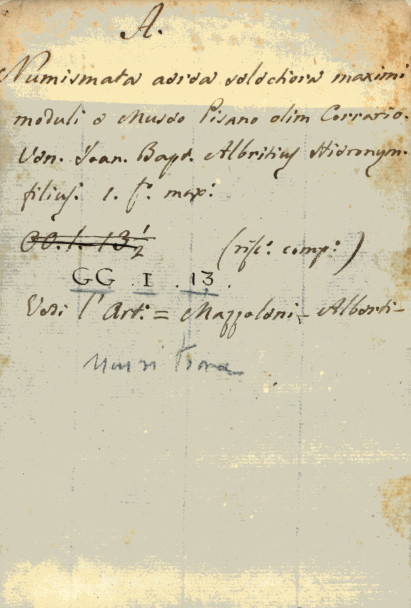 A.
Numismata aerea selectiora maximi
moduli e Museo Pisano olim Corrario.
Ven. Joan. Bapt. Albritius Hieronym.
filius. 1. f.º max:
OO. 1. 13 1/2
(risc.º comp.º)
GG . I . 13 .
Vedi l'Art.º = Mazzoleni - Alberti -
non si trova